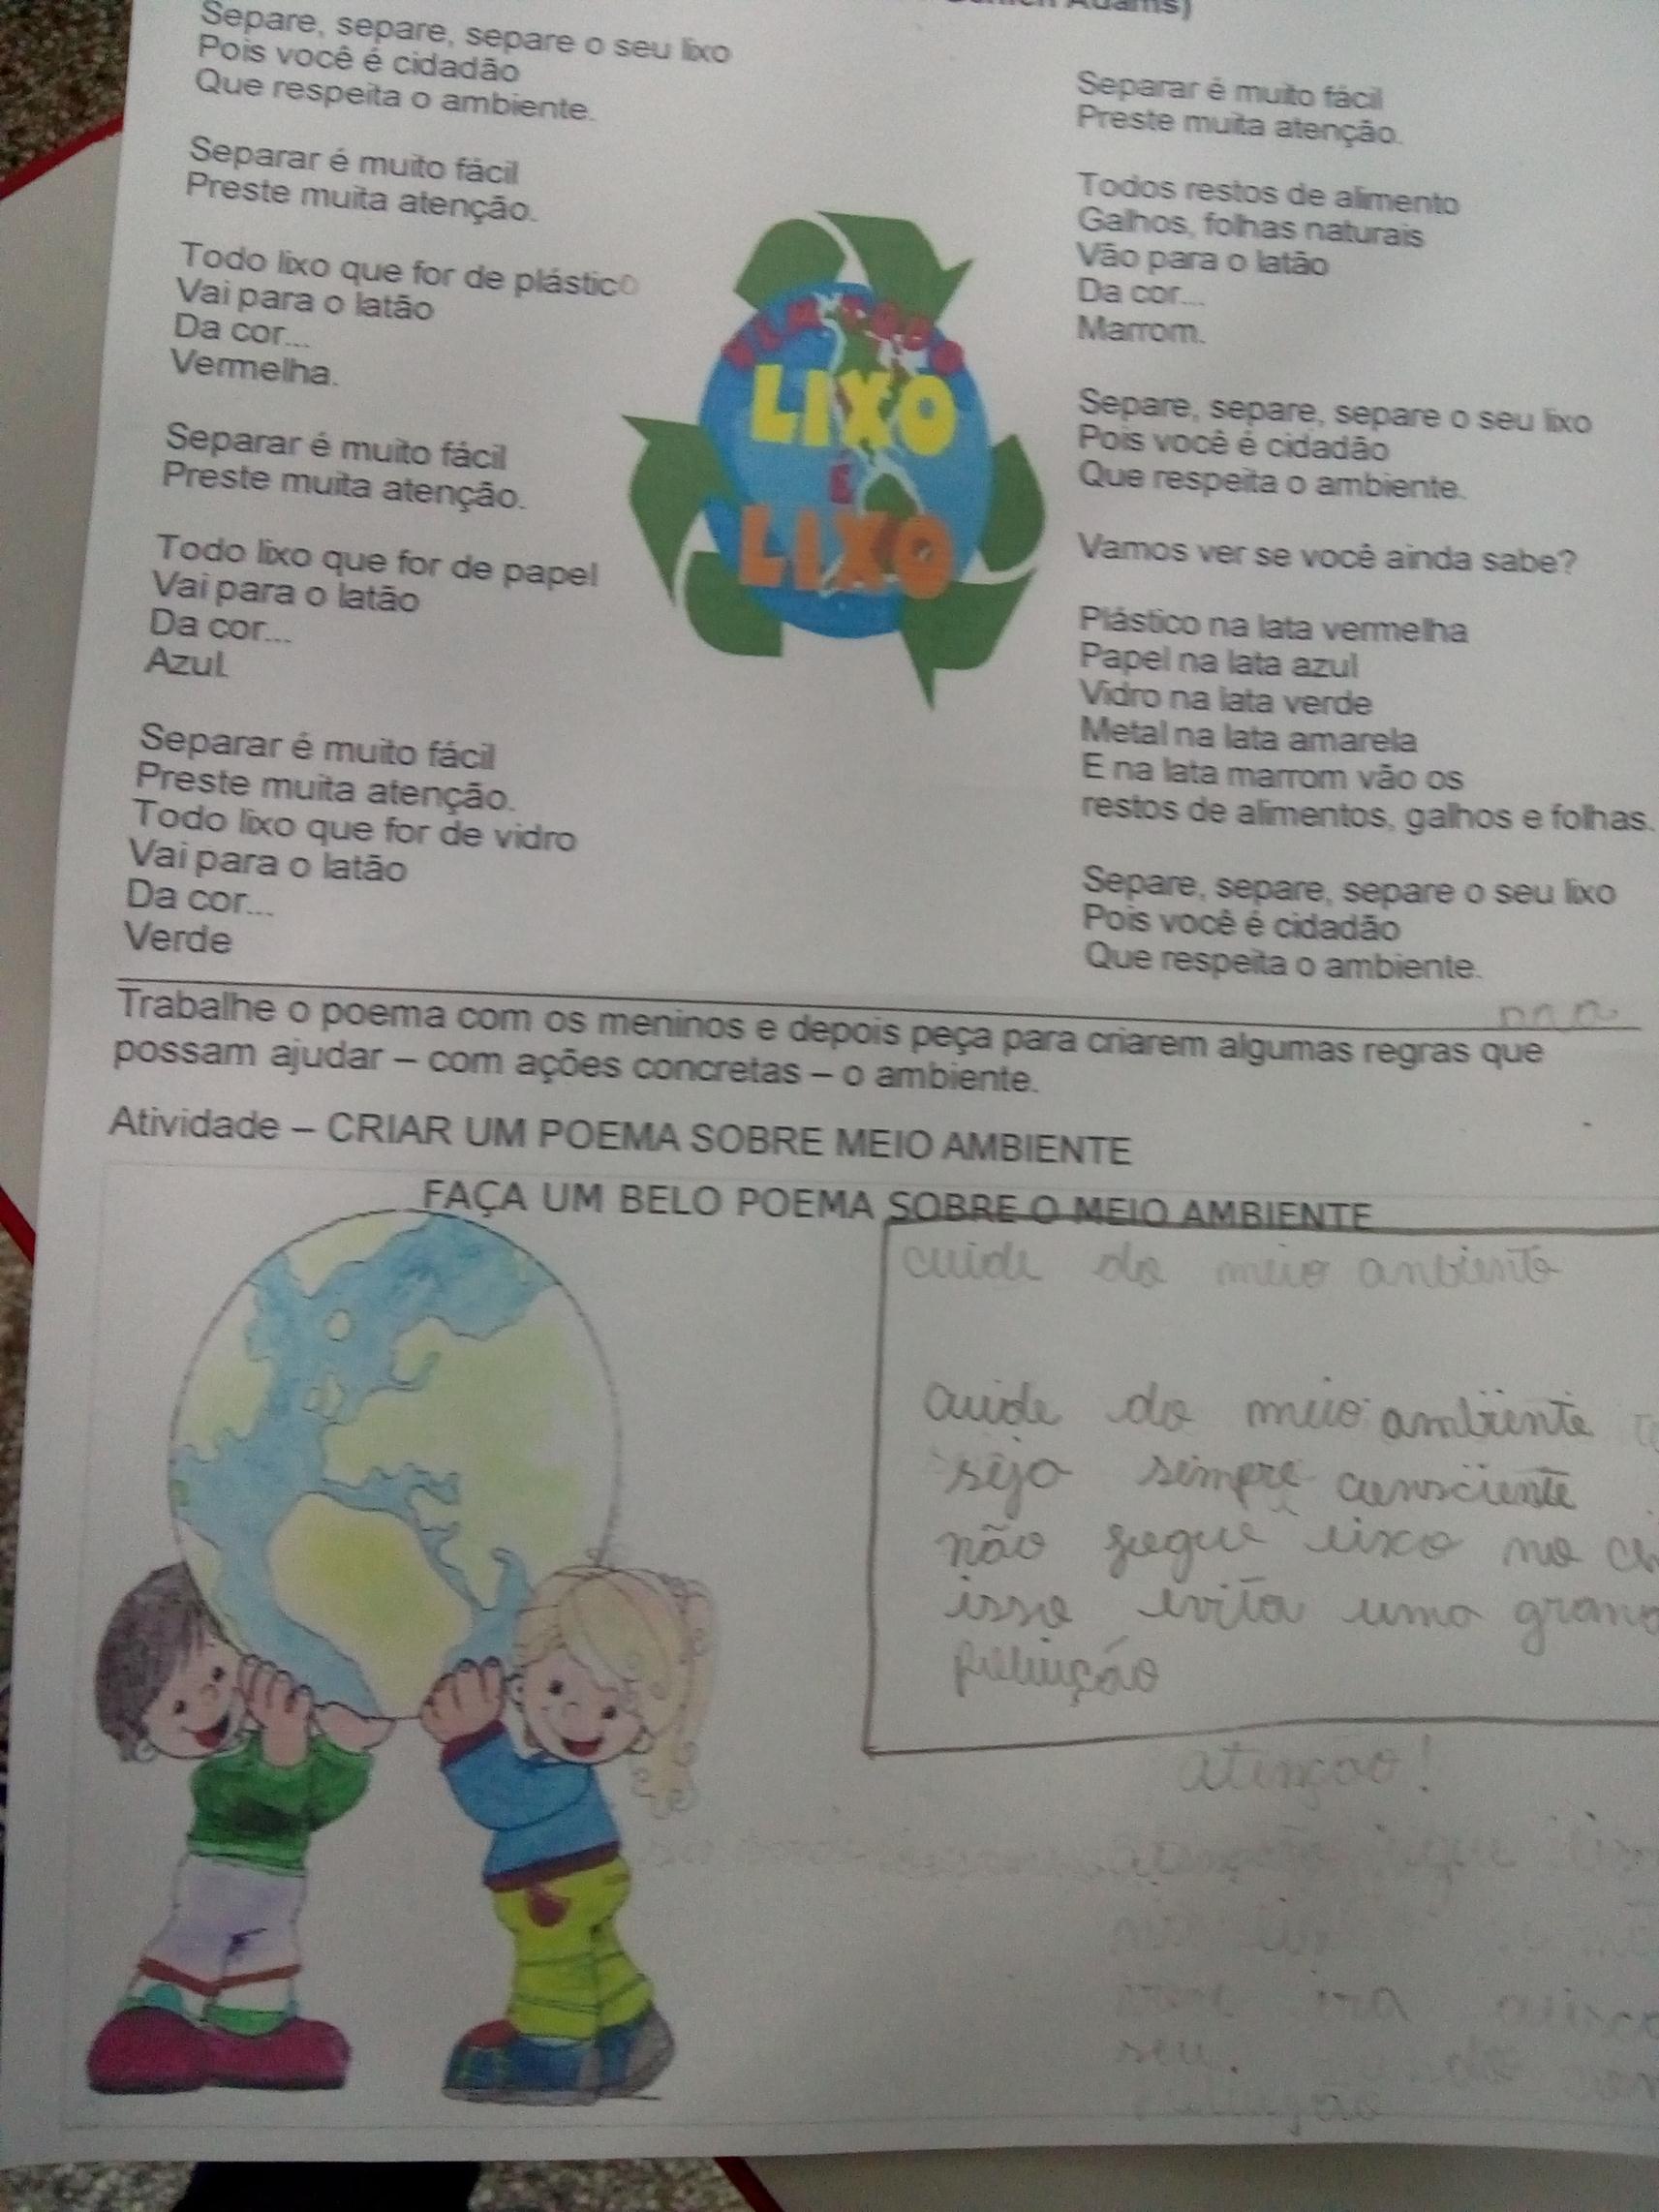 Adams)
Separe, separe, separe o seu lixo
Pois você é cidadão
Que respeita o ambiente.
Separar é muito fácil
Preste muita atenção.
Todo lixo que for de plástico
Vai para o latão
Da cor...
Vermelha.
Separar é muito fácil
Preste muita atenção.
Todo lixo que for de papel
Vai para o latão
Da cor...
Azul.
Separar é muito fácil
Preste muita atenção.
Todo lixo que for de vidro
Vai para o latão
Da cor...
Verde
NEM TODO
LIXO
É
LIXO
Separar é muito fácil
Preste muita atenção.
Todos restos de alimento
Galhos, folhas naturais
Vão para o latão
Da cor...
Marrom.
Separe, separe, separe o seu lixo
Pois você é cidadão
Que respeita o ambiente.
Vamos ver se você ainda sabe?
Plástico na lata vermelha
Papel na lata azul
Vidro na lata verde
Metal na lata amarela
E na lata marrom vão os
restos de alimentos, galhos e folhas.
Separe, separe, separe o seu lixo
Pois você é cidadão
Que respeita o ambiente.
Trabalhe o poema com os meninos e depois peça para criarem algumas regras que
possam ajudar – com ações concretas – o ambiente.
Atividade – CRIAR UM POEMA SOBRE MEIO AMBIENTE
FAÇA UM BELO POEMA SOBRE O MEIO AMBIENTE
cuide do meio anbiente
cuide do meio ambiente
seja sempre consciente
não jogue lixo no
isso evita uma
poluição
atenção!
seu.